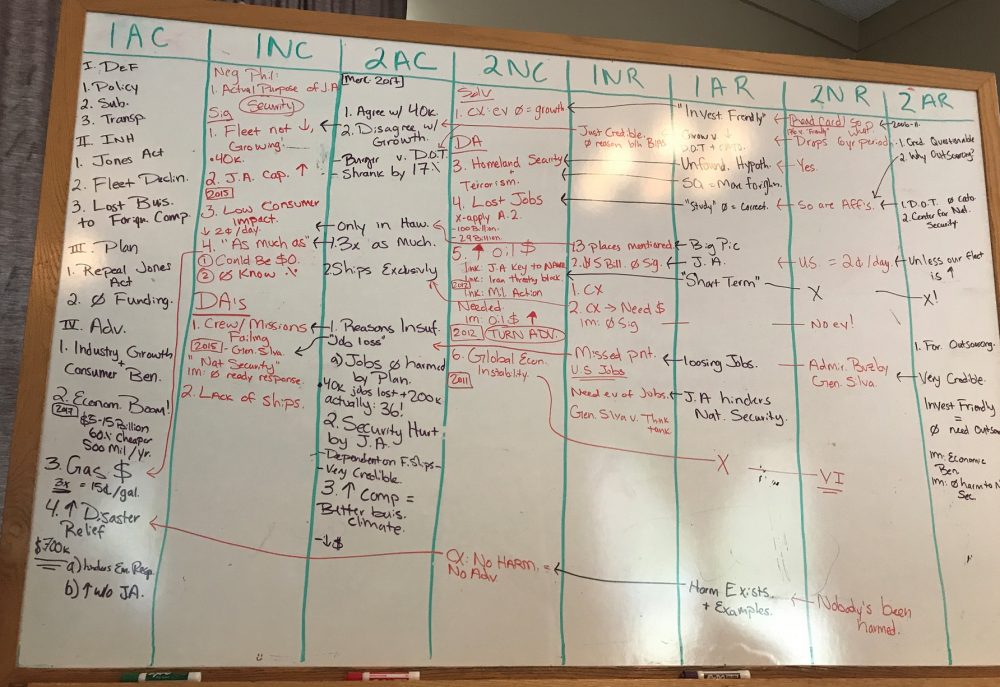 1AC
I. DeF
1. Policy
2. Sub.
3. Transp
II. INH
1. Jones Act
2. Fleet Declin.
3. Lost Buis.
to Forign Comp.
III. Plan
1. Repeal Jones
Act
2. Ø Funding.
IV. Adv.
1. Industry Growth
+
Consumer Ben.
2. Econom. Boom!
2017
$5-15 Billion
60% Cheaper
500 Mil/yr.
3. Gas $
3x = 15¢/gal.
4. ↑ Disaster
Relief
$700k
a) hinders Em. Resp.
b) ↑ w/o JA.
1NC
Neg Phil:
1. Actual Purpose of J.A
Security
Sig
1. Fleet not ↓,
"Growing"
• 40k.
2. J.A. Cap. ↑
2015
3. Low Consumer
impact.
↓ 2¢/day.
4. "As much as"
① Could Be $0.
② Ø Know
DA's
1. Crew/Missions
Failing
2015 - Gen. Silva.
"Nat Security"
im: Ø ready response.
2. Lack of Ships.
2AC
Merc. 2017
1. Agree w/ 40k.
2. Disagree w/
Growth.
Burger v. D.O.T.
Shrank by 17%
Only in Haw.
1. 3x as Much.
2. Ships Exclusivly
1. Reasons Insuf.
"Job loss"
a) Jobs Ø harmed
by Plan.
• 40k jobs lost + 200k
actually: 36!
2. Security Hurt
by J.A.
- Dependent on F. Ships -
- Very Credible
3. ↑ Comp =
Better buis.
climate.
- ↓ $
2NC
Solv
1. CX: ev Ø = growth
DA
3. Homeland Searity
+
Terrorism.
4. Lost Jobs
X-apply A.2.
- 100 Billion.
- 29 Billion.
5. ↑ Oil $
link: J.A Key to
link: Iran
2012
link: Mil. Action
Needed
im: Oil $ ↑
2012 TURN ADV.
6. Global Econ.
Instability.
2011
CX: No HARM =
No Adv
1NR
Just Credible.
Ø reason blh
13 places mentioned.
2. $5 Bill. Ø Sig.
1. CX
2. CX → Need $
im: Ø Sig
Missed pnt.
U.S Jobs
Need ev of Jobs.
Gen. Silva v. Think
tank
1AR
"Invest Frendly"
Grow v ↓
D.O.T + CATO.
Unfound. Hypoth.
SQ = More forighn.
"Study" Ø = Correct.
Big Pic
J.A.
"Short Term"
loosing Jobs.
J.A hinders
Nat. Security.
X
Harm Exists.
+ Examples.
2NR
So
what.
Drops 6yr period
Yes.
So are Aff's.
US. = 2¢/day.
X
No ev!
Admir. Buzby
Gen. Silva.
VI
Nobody's been
harmed.
2AR
1. Cred Questionable
2. Why Outsourcing?
1. D.O.T. Ø Cato.
2. Center for Nat.
Security
Unless our Fleet
is ↑
X!
1. For. Outsourcing.
Very Credible.
Invest Friendly
=
Ø need Outsou
im: Economic
Ben.
im: Ø harm to N
Sec.